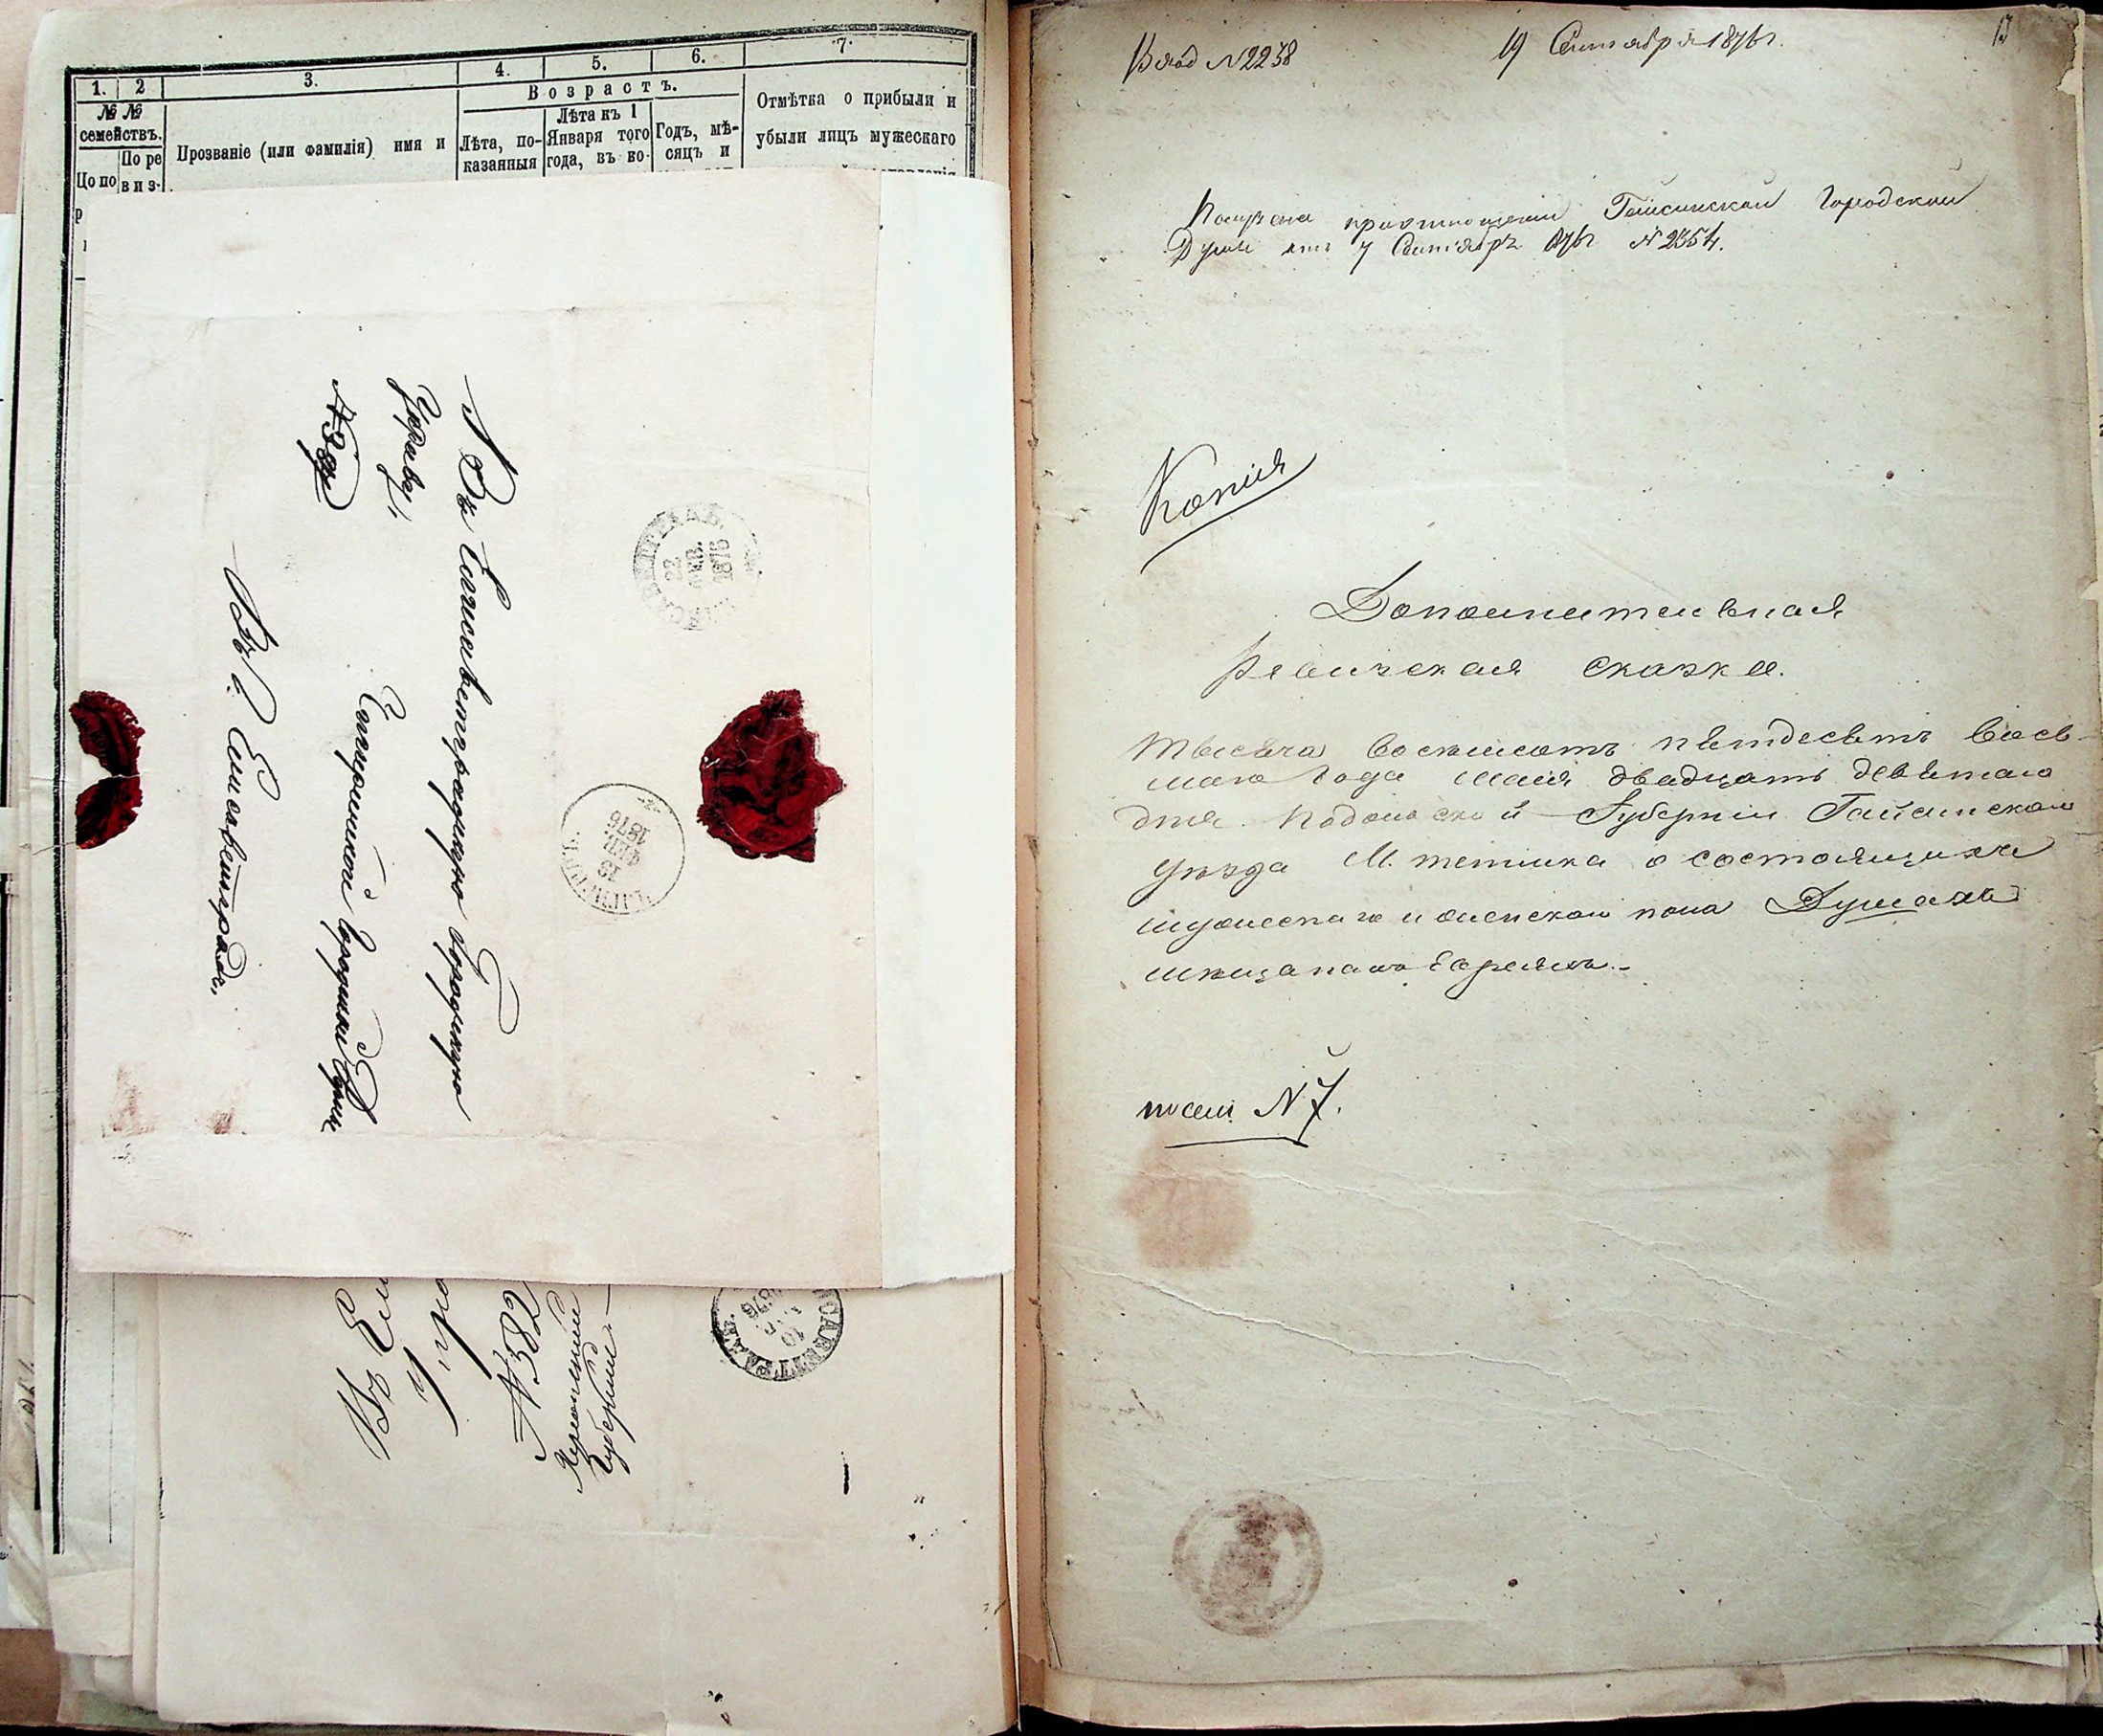 1. 2 3. 4. 5. 6. 7.
№ №
семействъ.
По ре
Цо по в и з-
Прозваніе (или фамилія) имя и
Возрастъ.
Лѣта, по-
казанныя
Лѣта къ 1
Января того
года, въ ко-
Годъ, мѣ-
сяцъ и
Отмѣтка о прибыли и
убыли лицъ мужескаго
Въ Елисаветградскую Городскую
Управу,
Городской Думы
Въ г. Елисаветградъ.
22
1876
13
1876
№ 382
Херсонской
Губерніи
10
1876
Вход №2238
19 Сентября 1876 г.
13
Получена при отношеніи Гайсинской Городской
Думы отъ 7 Сентября 1876 г. № 2354.
Копія
Дополнительная
Ревизская сказка.
тысяча восемьсотъ пятдесятъ вось-
маго года мая двадцать девятаго
дня. Подольской Губерніи Гайсинскаго
уѣзда М. Тетіика о состоящихъ
мужескаго и женскаго пола Душахъ
мѣщанахъ Евреяхъ.-
посем. № 7.